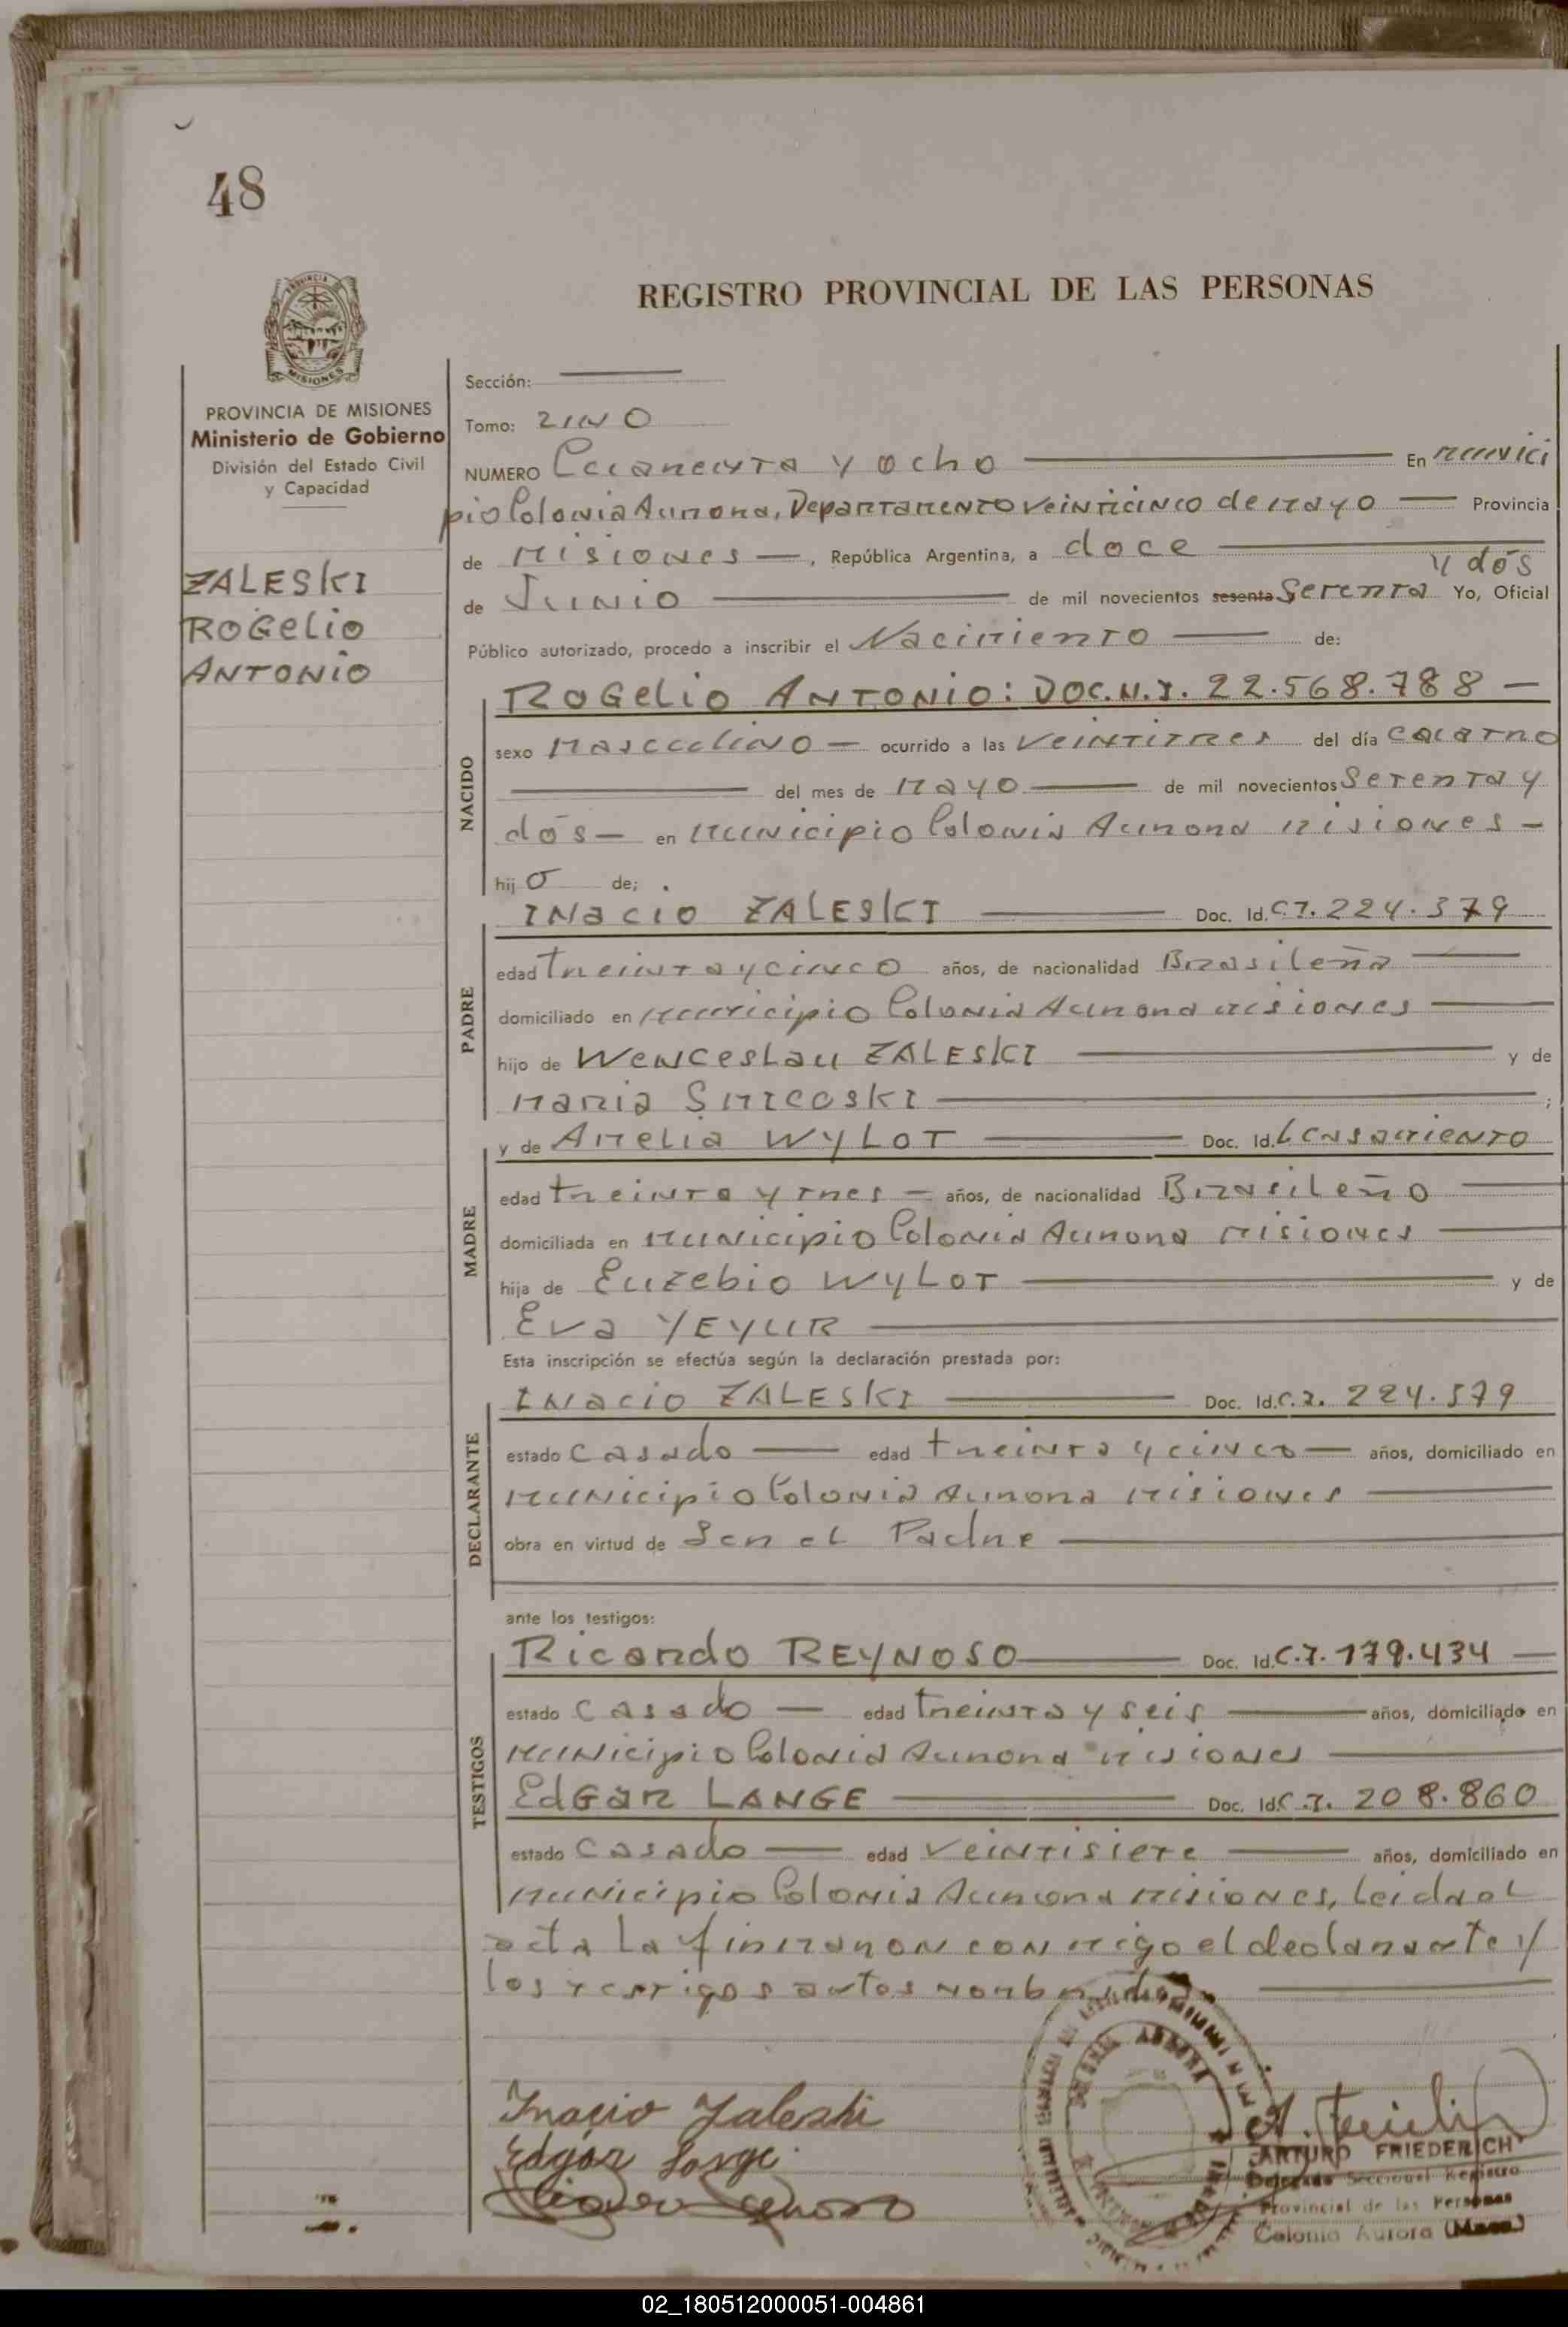 48
REGISTRO PROVINCIAL DE LAS PERSONAS
MISIONES
PROVINCIA DE MISIONES
Ministerio de Gobierno
División del Estado Civil
y Capacidad
ZALESKI
ROGELIO
ANTONIO
Sección:
Tomo: UNO
NUMERO Cuarenta y ocho En munici
pio Colonia Aurora, Departamento veinticinco de mayo Provincia
de Misiones, República Argentina, a doce
y dós
de Junio de mil novecientos sesenta Setenta Yo, Oficial
Público autorizado, procedo a inscribir el Nacimiento de:
NACIDO
ROGELIO ANTONIO: DOC.N.I. 22.568.788
sexo masculino ocurrido a las veintitres del día catorce
del mes de mayo de mil novecientos Setenta y
dós en municipio Colonia Aurora misiones
hijo de;
PADRE
INacio ZALESKI Doc. Id. C.I. 224.579
edad treinta y cinco años, de nacionalidad Brasileña
domiciliado en municipio Colonia Aurora misiones
hijo de Wenceslau ZALESKI y de
Maria SMICOSKI;
MADRE
y de Amelia WYLOT Doc. Id. C casamiento
edad treinta y tres años, de nacionalidad Brasileño
domiciliada en municipio Colonia Aurora misiones
hija de Euzebio WYLOT y de
Eva YEYUR
Esta inscripción se efectúa según la declaración prestada por:
DECLARANTE
INacio ZALESKI Doc. Id. C.I. 224.579
estado casado edad treinta y cinco años, domiciliado en
municipio Colonia Aurora misiones
obra en virtud de Ser el Padre
ante los testigos:
TESTIGOS
Ricardo REYNOSO Doc. Id. C.I. 179.434
estado casado edad treinta y seis años, domiciliado en
municipio Colonia Aurora misiones
Edgar LANGE Doc. Id. C.I. 208.860
estado casado edad veintisiete años, domiciliado en
municipio Colonia Aurora misiones, leida el
acta la firmaron conmigo el declarante y
los testigos antes nombrados
Inacio Zaleski
Edgar Lange
Ricardo Reynoso
ARTURO FRIEDERICH
Delegado Seccional Registro
Provincial de las Personas
Colonia Aurora (Mnes.)
02_180512000051-004861